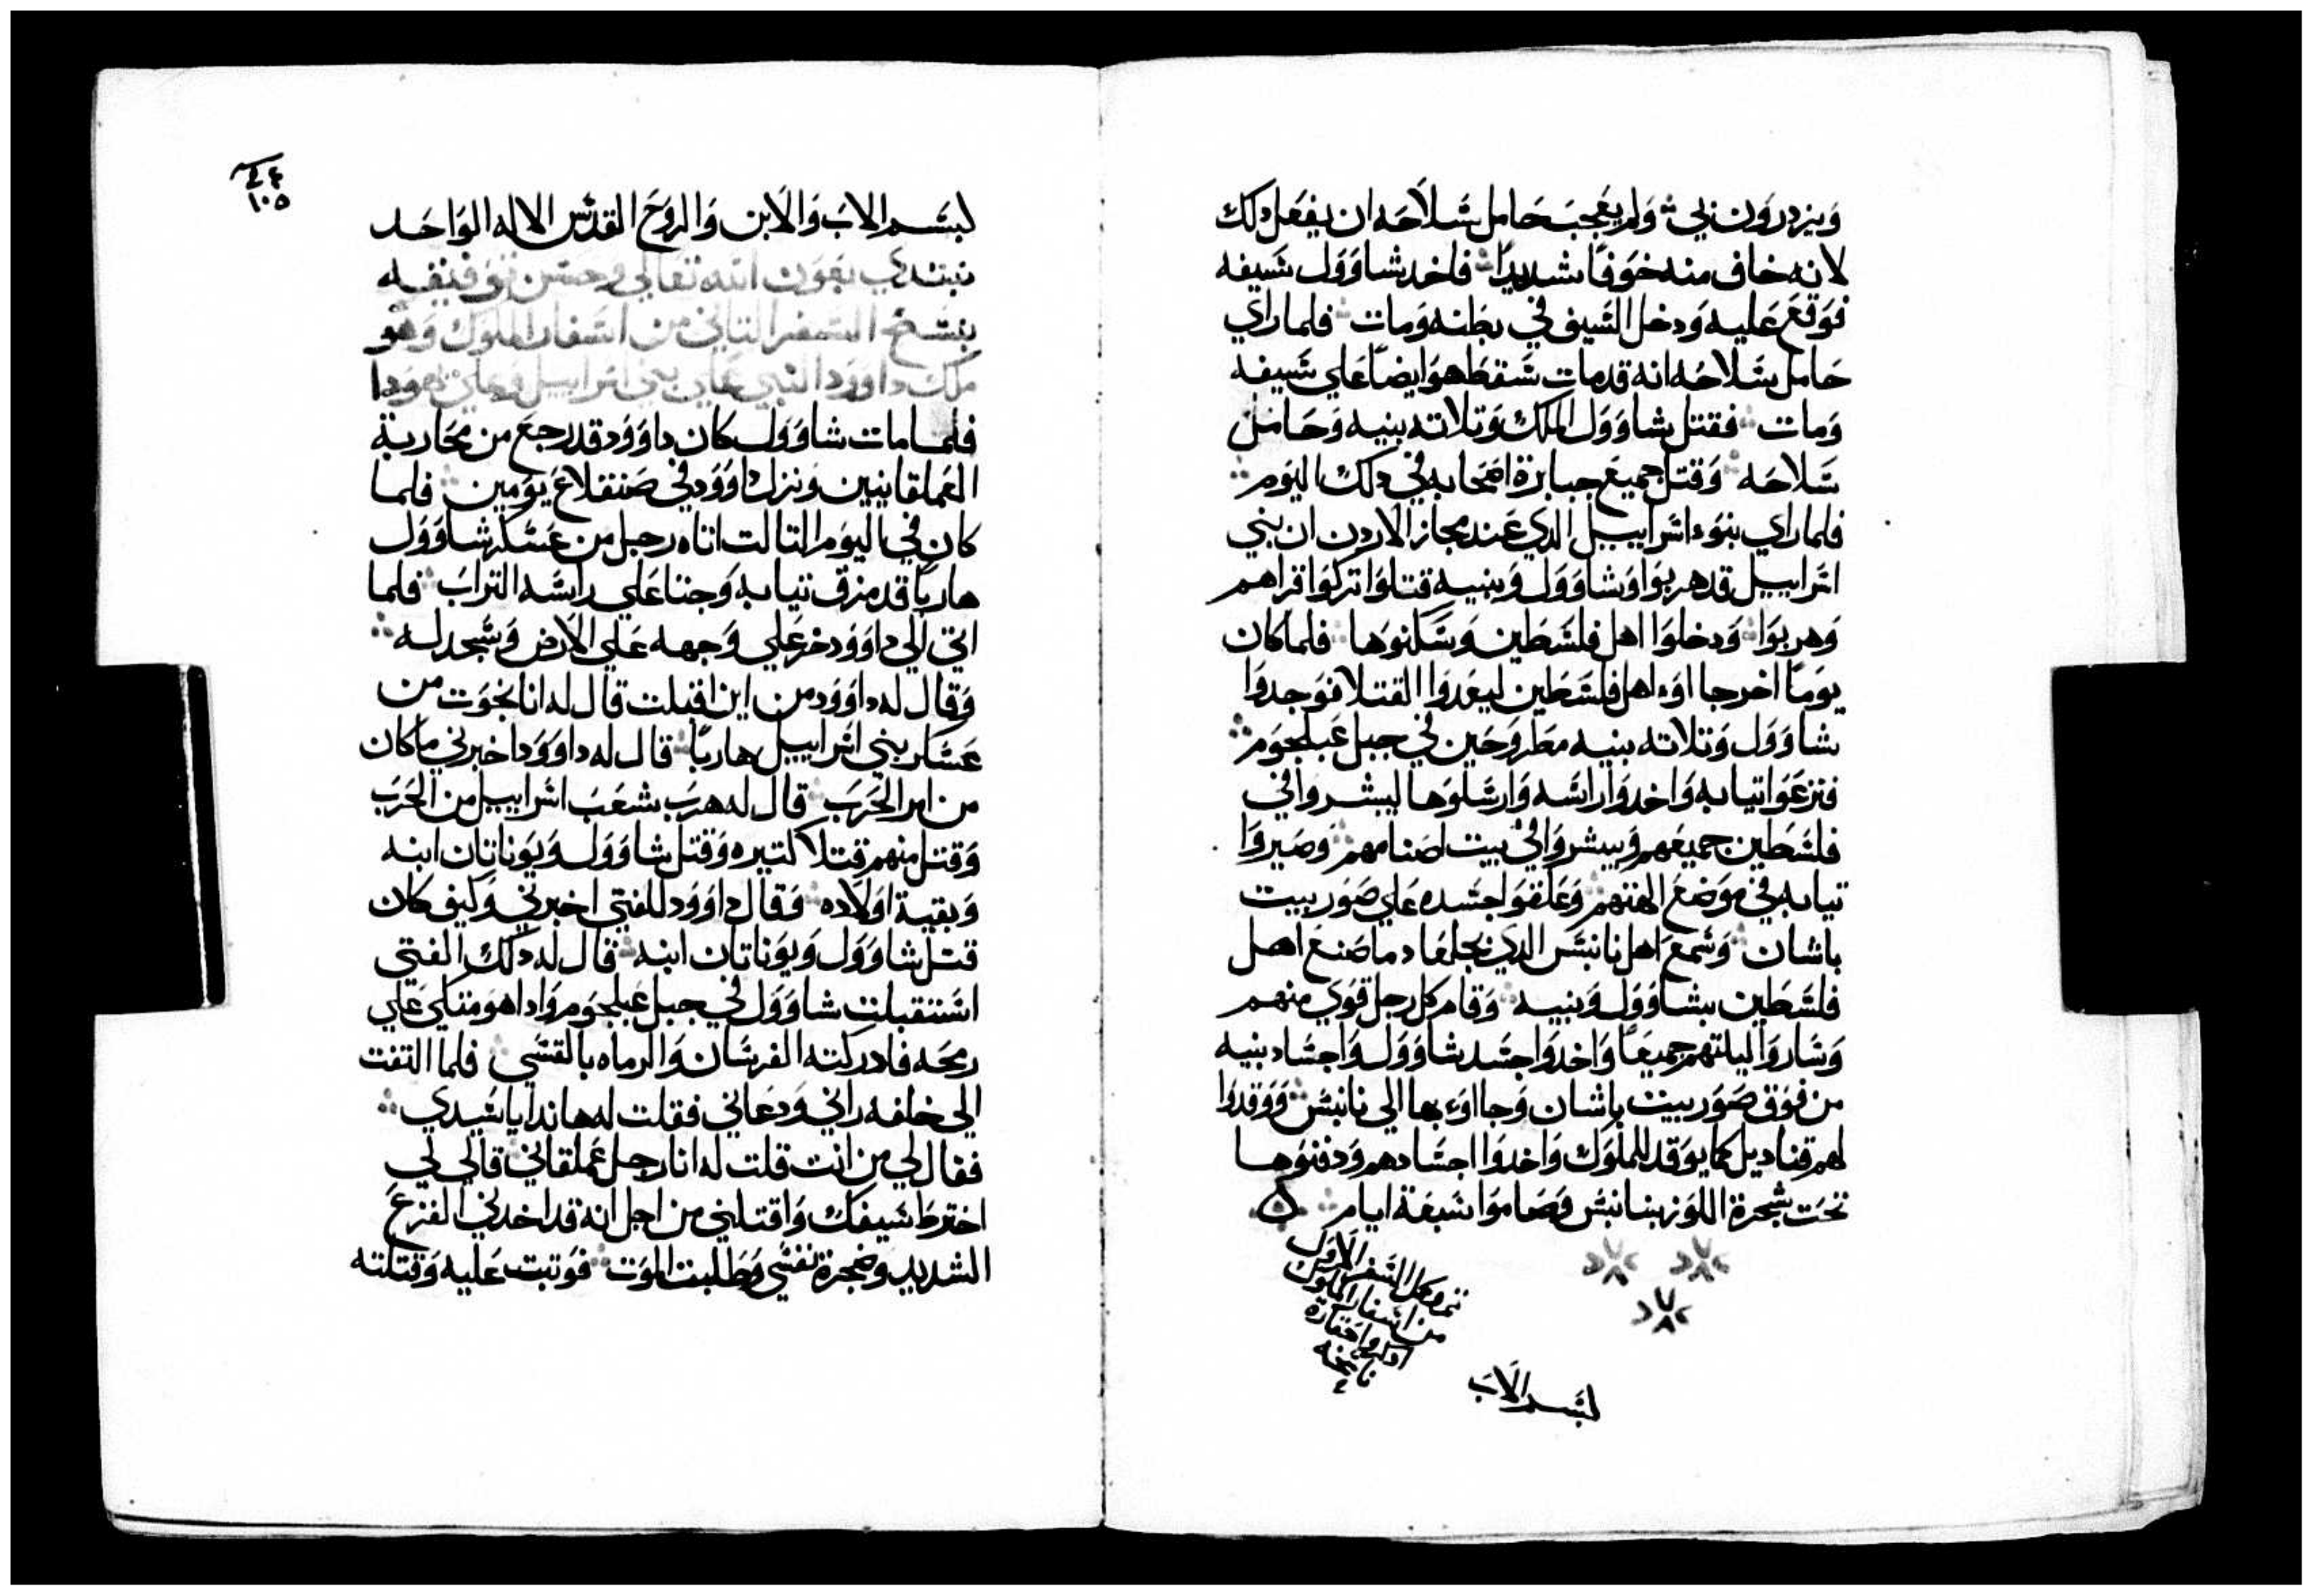 ويزدرون بي ولم يعجب حامل سلاحه ان يفعل دلك
لانه خاف منه خوفًا شديدًا فاخد شاوول سيفه
فوقع عليه ودخل السيف في بطنه ومات فلما راي
حامل سلاحه انه قد مات سقط هو ايضًا علي سيفه
ومات فقتل شاوول الملك وتلاته بنيه وحامل
سلاحه وقتل جميع جبابرة اصحابه في دلك اليوم
فلما راي بنوء اسراييل الدي عند مجاز الاردن ان بني
اسراييل قد هربوا وشاوول وبنيه قتلوا تركوا قراهم
وهربوا ودخلوا اهل فلسطين وسكنوها فلما كان
يومًا اخر جااوء اهل فلسطين ليعدوا القتلا فوجدوا
شاوول وتلاته بنيه مطروحين في جبل عيلبوم
فنزعوا تيابه واخدوا راسه وارسلوها ليبشروا في
فلسطين جميعهم ويبشروا في بيت اصنامهم وصيروا
تيابه في موضع الهتهم وعلقوا جسده علي صور بيت
باشان وسمع اهل نانبس الدي بجلعاد ما صنع اهل
فلسطين بشاوول وبنيه وقام كل رجل قوي منهم
وساروا ليلتهم جميعًا واخدوا جسد شاوول واجساد بنيه
من فوق صور بيت باشان وجااوء بها الي نانبس ووقدوا
لهم قناديل كما يوقد للملوك واخدوا اجسادهم ودفنوها
تحت شجرة اللوز بنانبس وصاموا سبعة ايام
تم وكمل السفر الاول
من اسفار الملوك
بسم الاب
٢٤
١٠٥
بسم الاب والابن والروح القدس الاله الواحد
نبتدي بعون الله تعالي وحسن توفيقه
بنسخ السفر التاني من اسفار الملوك وهو
ملك داوود النبي علي بني اسراييل وعلي يهودا
فلما مات شاوول كان داوود قد رجع من محاربة
العملقانيين ونزل داوود في صنقلاغ يومين فلما
كان في اليوم التالت اتاه رجل من عسكر شاوول
هاربًا قد مزق تيابه وجنا علي راسه التراب فلما
اتي الي داوود خر علي وجهه علي الارض وسجد له
وقال له داوود من اين اقبلت قال له انا نجوت من
عسكر بني اسراييل هاربًا قال له داوود اخبرني ما كان
من امر الحرب قال له هرب شعب اسراييل من الحرب
وقتل منهم قتلا كتيره وقتل شاوول ويوناتان ابنه
وبقية اولاده وقال داوود للفتي اخبرني وكيف كان
قتل شاوول ويوناتان ابنه قال له دلك الفتي
استقبلت شاوول في جبل عيلبوم وادا هو متكي علي
رمحه فادركته الفرسان والرماه بالقسي فلما التفت
الي خلفه راني ودعاني فقلت له هاندا يا سيدي
فقال لي من انت قلت له انا رجل عملقاني قال لي
اخترط سيفك واقتلني من اجل انه قد اخدني الفزع
الشديد وضجرة نفسي وطلبت الموت فوتبت عليه وقتلته